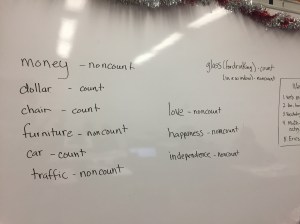 money - noncount
dollar - count
chair - count
furniture - noncount
car - count
traffic - noncount
glass (for drinking) - count
(in a window) - noncount
love - noncount
happiness - noncount
independence - noncount